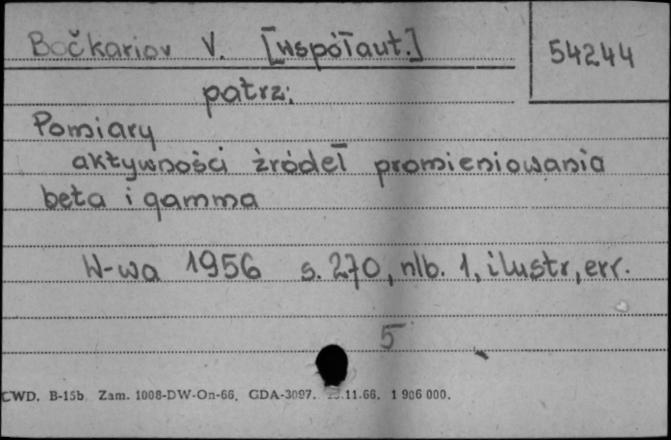 Bočkariov V. [współaut.]
54244
patrz:
Pomiary
aktywności źródeł promieniowania
beta i gamma
W-wa 1956 s. 270, nlb. 1, ilustr, err.
5
CWD. B-15b Zam. 1008-DW-On-66. GDA-3097. .11.66. 1 906 000.